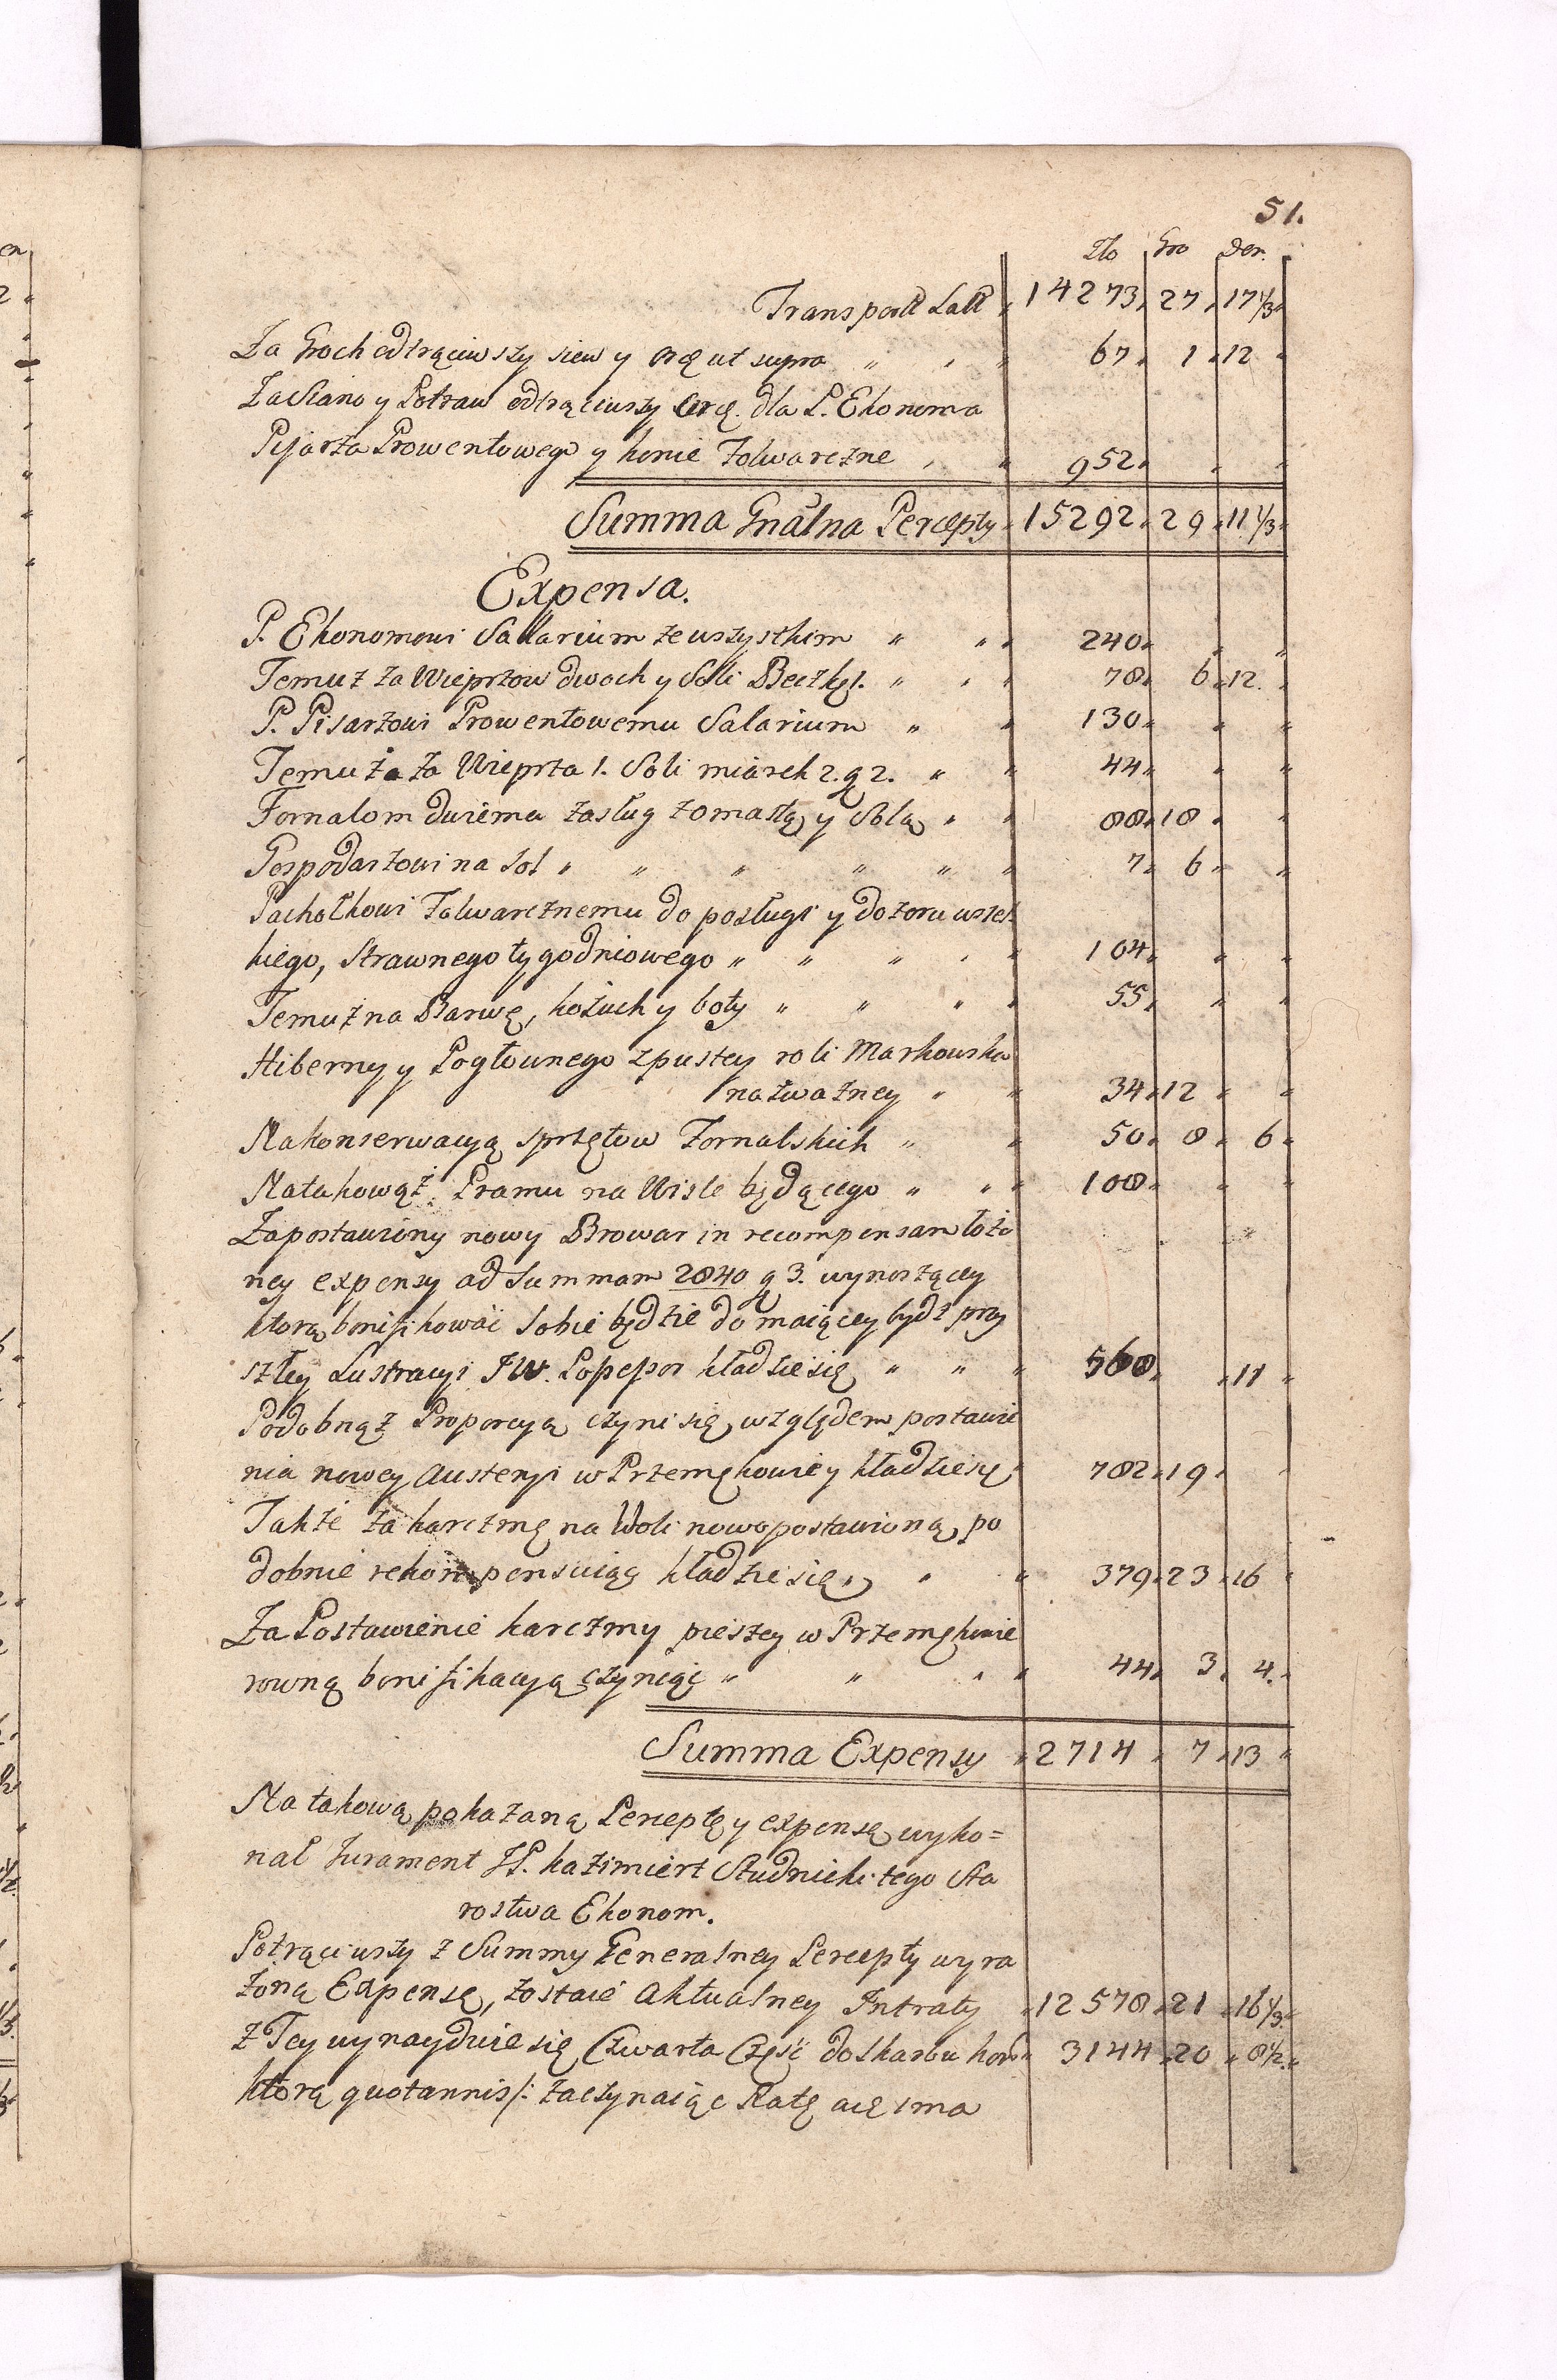 51.
Zło Gro Den.
Transport Latt 14273 27 17 1/3
Za Groch odtrąciwszy siew y Orę ut supra 67 1 12
Za Siano y Potraw odtrąciwszy Orę. dla P. Ekonoma
Pisarza Prowentowego y konie folwarczne 952
Summa Gnälna Percepty 15292 29 11 1/3
Expensa.
P. Ekonomowi Sallarium ze wszystkim 240
Temuz za Wieprzow dwoch y Soli Beczkę 1. 78 6 12.
P. Pisarzowi Prowentowemu Salarium 130
Temuż za Wieprza 1. Soli miarek 2. g 2. 44
Fornalom dwiema zasług z omastą y Solą 88 18
Gospodarzowi na Sol 7 6
Pachołkowi folwarcznemu do posługi y dozoru wszel
kiego, Strawnego tygodniowego 104
Temuz na Barwę, kożuch y boty 55
Hiberny y Pogłownego z pustey roli Markowska
nazwazney 34 12
Na konserwacyą sprzętow fornalskich 50 8 6
Na takowąż Pramu na Wisle będącego 108
Za postawiony nowy Browar in recompensam łożo
ney expensy ad Summam 2840 g 3. wynoszącey
ktorą bonifikować sobie będzie do maiącey bydź przy
szłey Lustracyi JW. Possessor kładzie się 568 11
Podobnąż Proporcyą czyni się względem postawie
nia nowey Austeryi w Przemękowie y kładzie się 782 19
Takze za karczmę na Woli nowo postawioną, po
dobnie rekompensuiąc kładzie się 379 23 16
Za Postawienie karczmy pieszey w Przemękowie
rowną bonifikacyą czyniąc 44 3 4.
Summa Expensy 2714 7 13
Na takową pokazaną Perceptę y expensę wyko=
nał Jurament JP. Kazimierz Studnicki tego Sta
rostwa Ekonom.
Potrąciwszy z Summy Generalney Percepty wyra
żoną Expensę, zostaie Aktualney Intraty 12578 21 16 1/3
z Tey wynayduie się Czwarta Część do Skarbu Kor 3144 20 8 1/2
ktorą quotannis /: zaczynaiąc Ratę a die 1ma